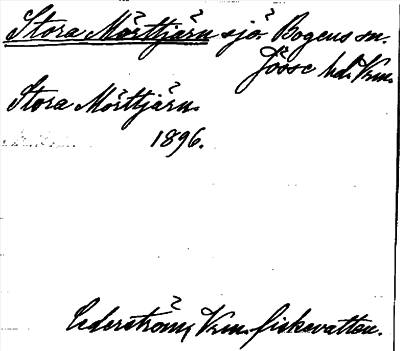 Stora Mörttjärn sjö Bogens sn.
Jösse hd. Vrm.
Stora Mörttjärn.
1896.
Cederström, Vrm. fiskevatten.